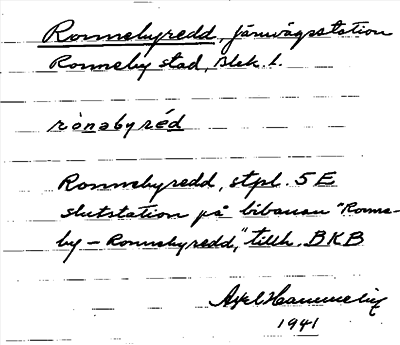 Ronnebyredd, järnvägsstation
Ronneby stad, Blek. l.
rònəbyréd
Ronnebyredd, stpl. 5 E
slutstation på bibanan "Ronne-
by – Ronnebyredd", tillh. BKB
Axel Hammelin
1941